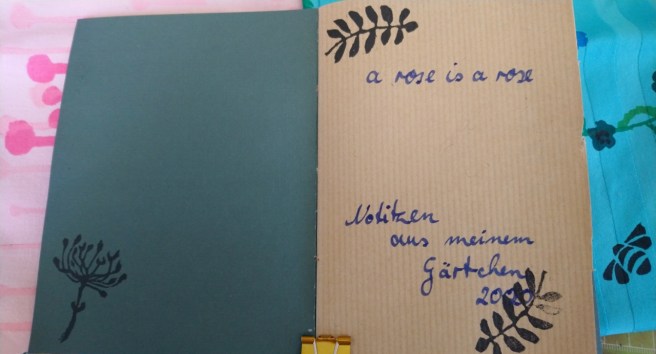 a rose is a rose
Notitzen
aus meinem
Gärtchen
2020